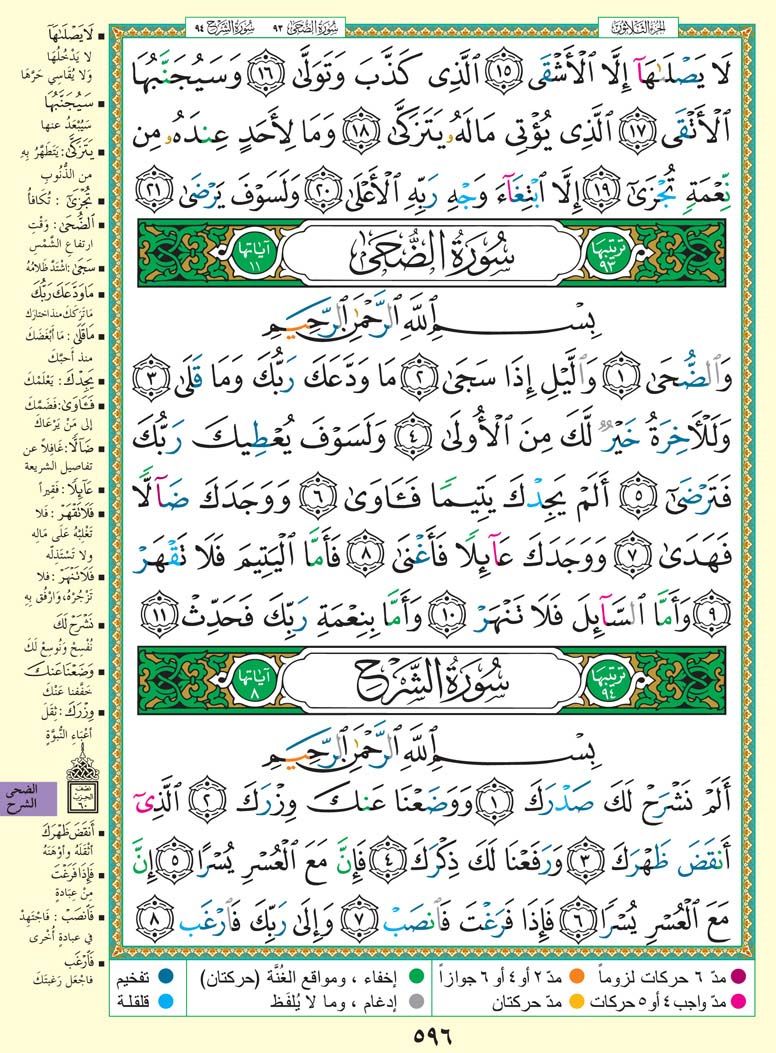 الجزء الثلاثون
سورة الضحى ٩٣
سورة الشرح ٩٤
لَا يَصْلَىٰهَآ إِلَّا ٱلْأَشْقَى ١٥ ٱلَّذِى كَذَّبَ وَتَوَلَّىٰ ١٦ وَسَيُجَنَّبُهَا
ٱلْأَتْقَى ١٧ ٱلَّذِى يُؤْتِى مَالَهُۥ يَتَزَكَّىٰ ١٨ وَمَا لِأَحَدٍ عِندَهُۥ مِن
نِّعْمَةٍ تُجْزَىٰٓ ١٩ إِلَّا ٱبْتِغَآءَ وَجْهِ رَبِّهِ ٱلْأَعْلَىٰ ٢٠ وَلَسَوْفَ يَرْضَىٰ ٢١
ترتيبها ٩٣
سُورَةُ الضُّحَىٰ
آياتها ١١
بِسْمِ ٱللَّهِ ٱلرَّحْمَٰنِ ٱلرَّحِيمِ
وَٱلضُّحَىٰ ١ وَٱلَّيْلِ إِذَا سَجَىٰ ٢ مَا وَدَّعَكَ رَبُّكَ وَمَا قَلَىٰ ٣
وَلَلْءَاخِرَةُ خَيْرٌ لَّكَ مِنَ ٱلْأُولَىٰ ٤ وَلَسَوْفَ يُعْطِيكَ رَبُّكَ
فَتَرْضَىٰٓ ٥ أَلَمْ يَجِدْكَ يَتِيمًا فَـَٔاوَىٰ ٦ وَوَجَدَكَ ضَآلًّا
فَهَدَىٰ ٧ وَوَجَدَكَ عَآئِلًا فَأَغْنَىٰ ٨ فَأَمَّا ٱلْيَتِيمَ فَلَا تَقْهَرْ
٩ وَأَمَّا ٱلسَّآئِلَ فَلَا تَنْهَرْ ١٠ وَأَمَّا بِنِعْمَةِ رَبِّكَ فَحَدِّثْ ١١
ترتيبها ٩٤
سُورَةُ الشَّرْحِ
آياتها ٨
بِسْمِ ٱللَّهِ ٱلرَّحْمَٰنِ ٱلرَّحِيمِ
أَلَمْ نَشْرَحْ لَكَ صَدْرَكَ ١ وَوَضَعْنَا عَنكَ وِزْرَكَ ٢ ٱلَّذِىٓ
أَنقَضَ ظَهْرَكَ ٣ وَرَفَعْنَا لَكَ ذِكْرَكَ ٤ فَإِنَّ مَعَ ٱلْعُسْرِ يُسْرًا ٥ إِنَّ
مَعَ ٱلْعُسْرِ يُسْرًا ٦ فَإِذَا فَرَغْتَ فَٱنصَبْ ٧ وَإِلَىٰ رَبِّكَ فَٱرْغَب ٨
لَا يَصْلَىٰهَا
لا يَدْخُلُهَا
ولا يُقَاسِي حَرَّهَا
سَيُجَنَّبُهَا
سَيُبْعَدُ عنها
يَتَزَكَّىٰ: يَتَطَهَّرُ بِهِ
من الذُّنُوبِ
تُجْزَىٰ: تُكَافَأُ
الضُّحَىٰ: وَقْتِ
ارتفاع الشَّمْسِ
سَجَىٰ: اشْتَدَّ ظَلَامُهُ
مَا وَدَّعَكَ رَبُّكَ
مَا تَرَكَكَ منذ اختارك
مَا قَلَىٰ: مَا أَبْغَضَكَ
منذ أَحَبَّكَ
يَجِدْكَ: يَعْلَمْكَ
فَـَٔاوَىٰ: فَضَمَّكَ
إلى مَنْ يَرْعَاكَ
ضَآلًّا: غَافِلاً عن
تفاصيل الشريعة
عَآئِلًا: فَقِيراً
فَلَا تَقْهَرْ: فلا
تَغْلِبْهُ على مَالِهِ
ولا تَسْتَذِلَّه
فَلَا تَنْهَرْ: فلا
تَزْجُرْهُ، وَارْفُق بِهِ
نَشْرَحْ لَكَ
نُفْسِحْ وَنُوسِعْ لَكَ
وَضَعْنَا عَنكَ
خَفَّفْنا عَنْكَ
وِزْرَكَ: ثِقَلَ
أعْبَاءِ النُّبوَّةِ
نصف الحزب ٦٠
الضحى
الشرح
أَنقَضَ ظَهْرَكَ
أَثْقَلَهُ وَأَوْهَنَهُ
فَإِذَا فَرَغْتَ
مِنْ عِبَادَةٍ
فَٱنصَبْ: فاجْتَهِدْ
في عبادةٍ أُخْرى
فَٱرْغَب
فاجْعَل رَغبتَكَ
مدّ ٦ حركات لزوماً
مدّ ٢ أو ٤ أو ٦ جوازاً
إخفاء ، ومواقع الغُنَّة (حركتان)
تفخيم
مدّ واجب ٤ أو ٥ حركات
مدّ حركتان
إدغام ، وما لا يُلفَظ
قلقلة
٥٩٦